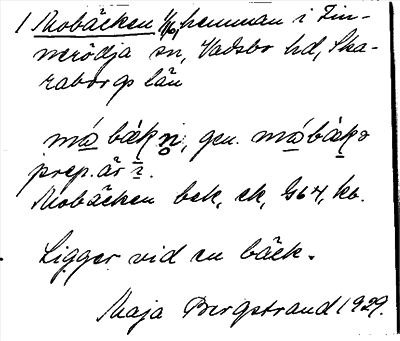 1 Mobäcken 1/6, hemman i Fin-
nerödja sn, Vadsbo hd, Ska-
raborgs län
må bäkn, gen. måbäks
prep. är i.
Mobäcken bek, ek, Gb 4, kb.
Ligger vid en bäck.
Maja Bergstrand 1929.